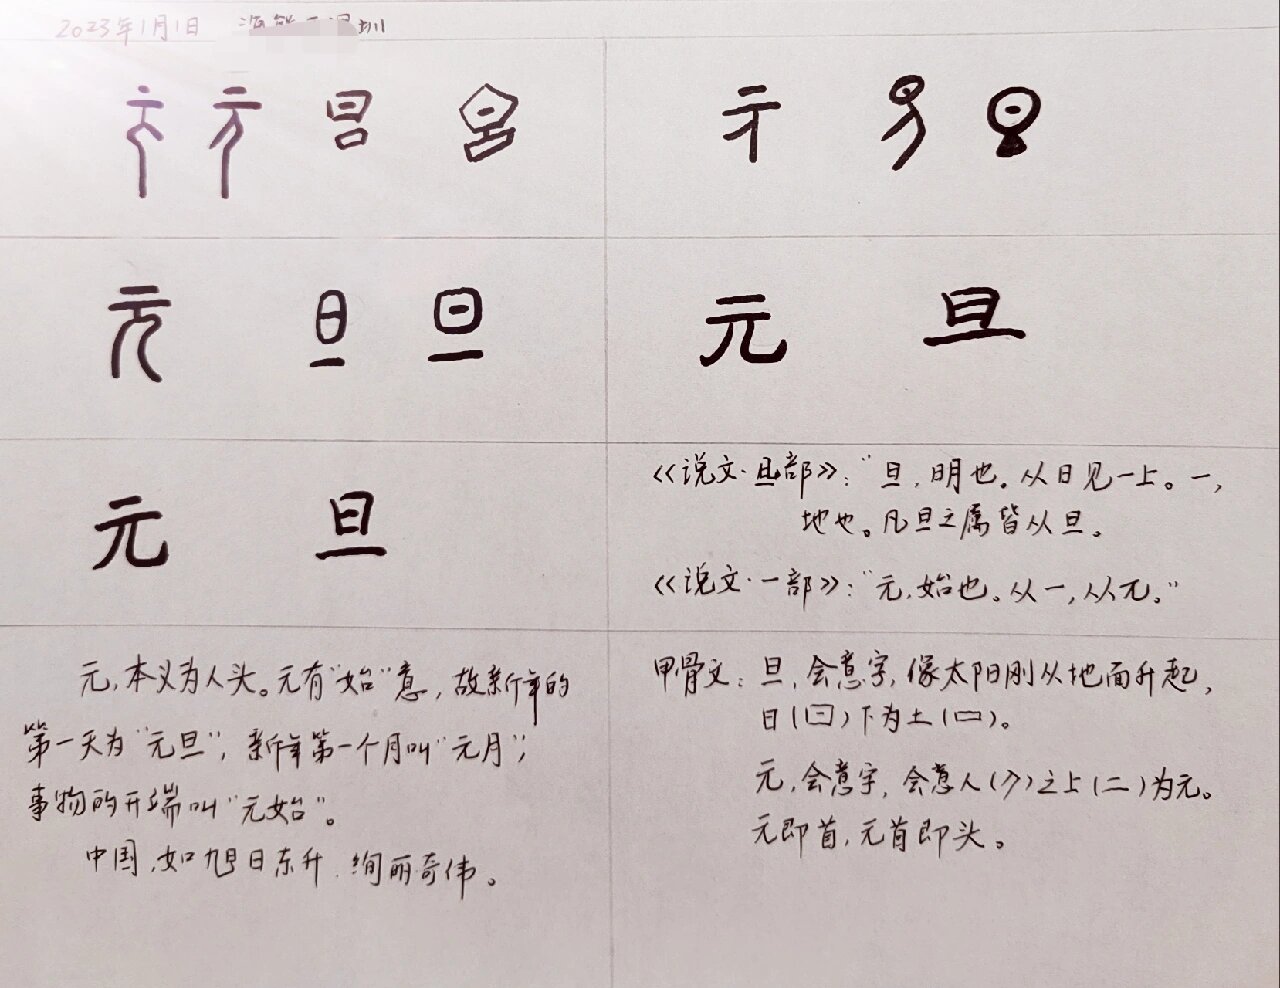 2023年1月1日 圳
元 元 旦 旦
元 元 旦
元 旦 旦
元 旦
元 旦
《说文·旦部》:“旦,明也。从日见一上。一,
地也。凡旦之属皆从旦。
《说文·一部》:“元,始也。从一,从兀。”
元,本义为人头。元有“始”意,故新年的
第一天为“元旦”,新年第一个月叫“元月”,
事物的开端叫“元始”。
中国,如旭日东升,绚丽奇伟。
甲骨文:旦,会意字,像太阳刚从地面升起,
日(日)下为土(口)。
元,会意字,会意人()之上(二)为元。
元即首,元首即头。